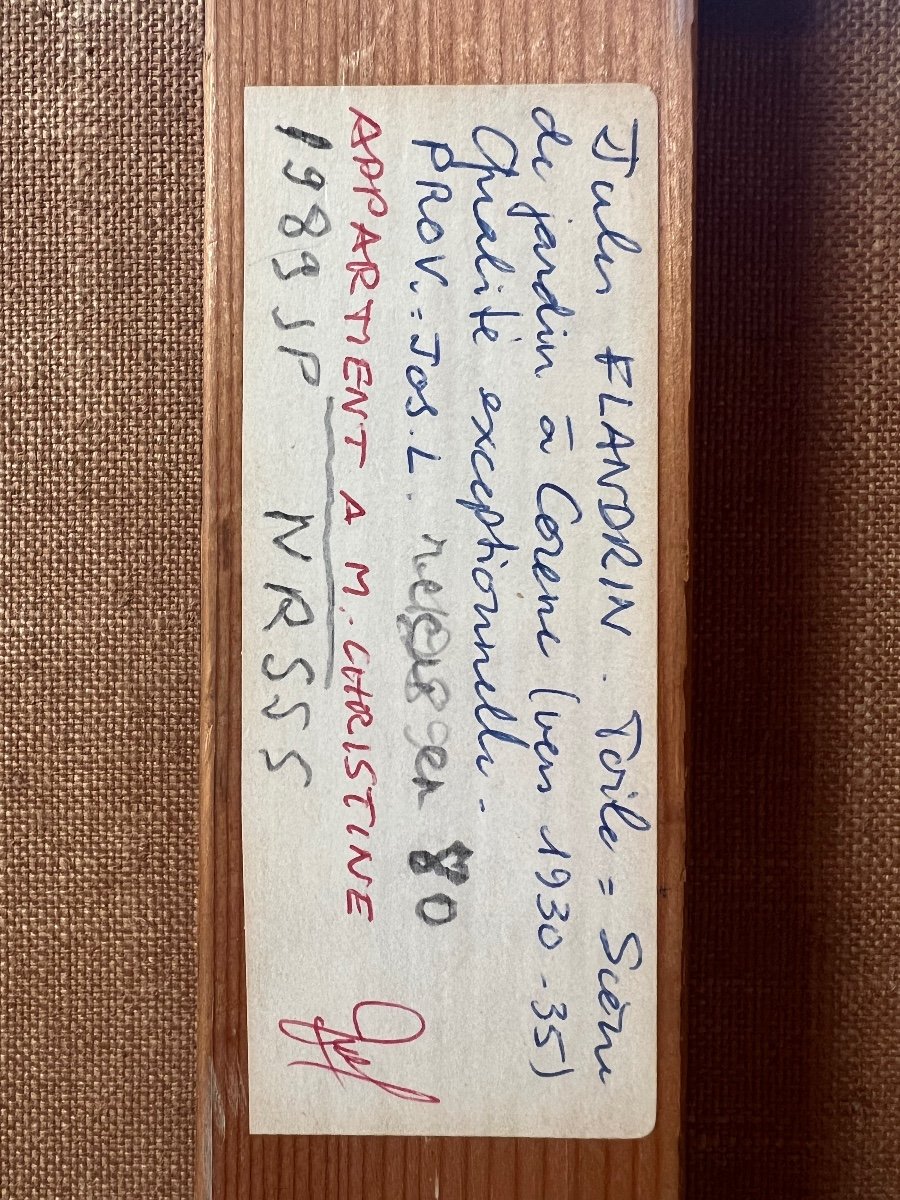 Jules FLANDRIN. Toile = Scène
de jardin à Corenc (vers 1930-35)
Qualité exceptionnelle.
PROV. = Jos. L. 80
APPARTIENT A M. CHRISTINE
1989 SP NRSSS